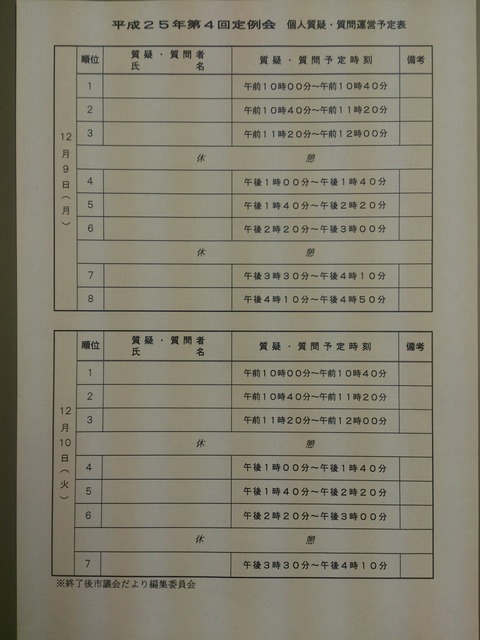 平成25年第4回定例会 個人質疑・質問運営予定表
12月9日(月)
順位 質疑・質問者氏名 質疑・質問予定時刻 備考
1 午前10時00分~午前10時40分
2 午前10時40分~午前11時20分
3 午前11時20分~午前12時00分
休憩
4 午後1時00分~午後1時40分
5 午後1時40分~午後2時20分
6 午後2時20分~午後3時00分
休憩
7 午後3時30分~午後4時10分
8 午後4時10分~午後4時50分
12月10日(火)
順位 質疑・質問者氏名 質疑・質問予定時刻 備考
1 午前10時00分~午前10時40分
2 午前10時40分~午前11時20分
3 午前11時20分~午前12時00分
休憩
4 午後1時00分~午後1時40分
5 午後1時40分~午後2時20分
6 午後2時20分~午後3時00分
休憩
7 午後3時30分~午後4時10分
※終了後市議会だより編集委員会